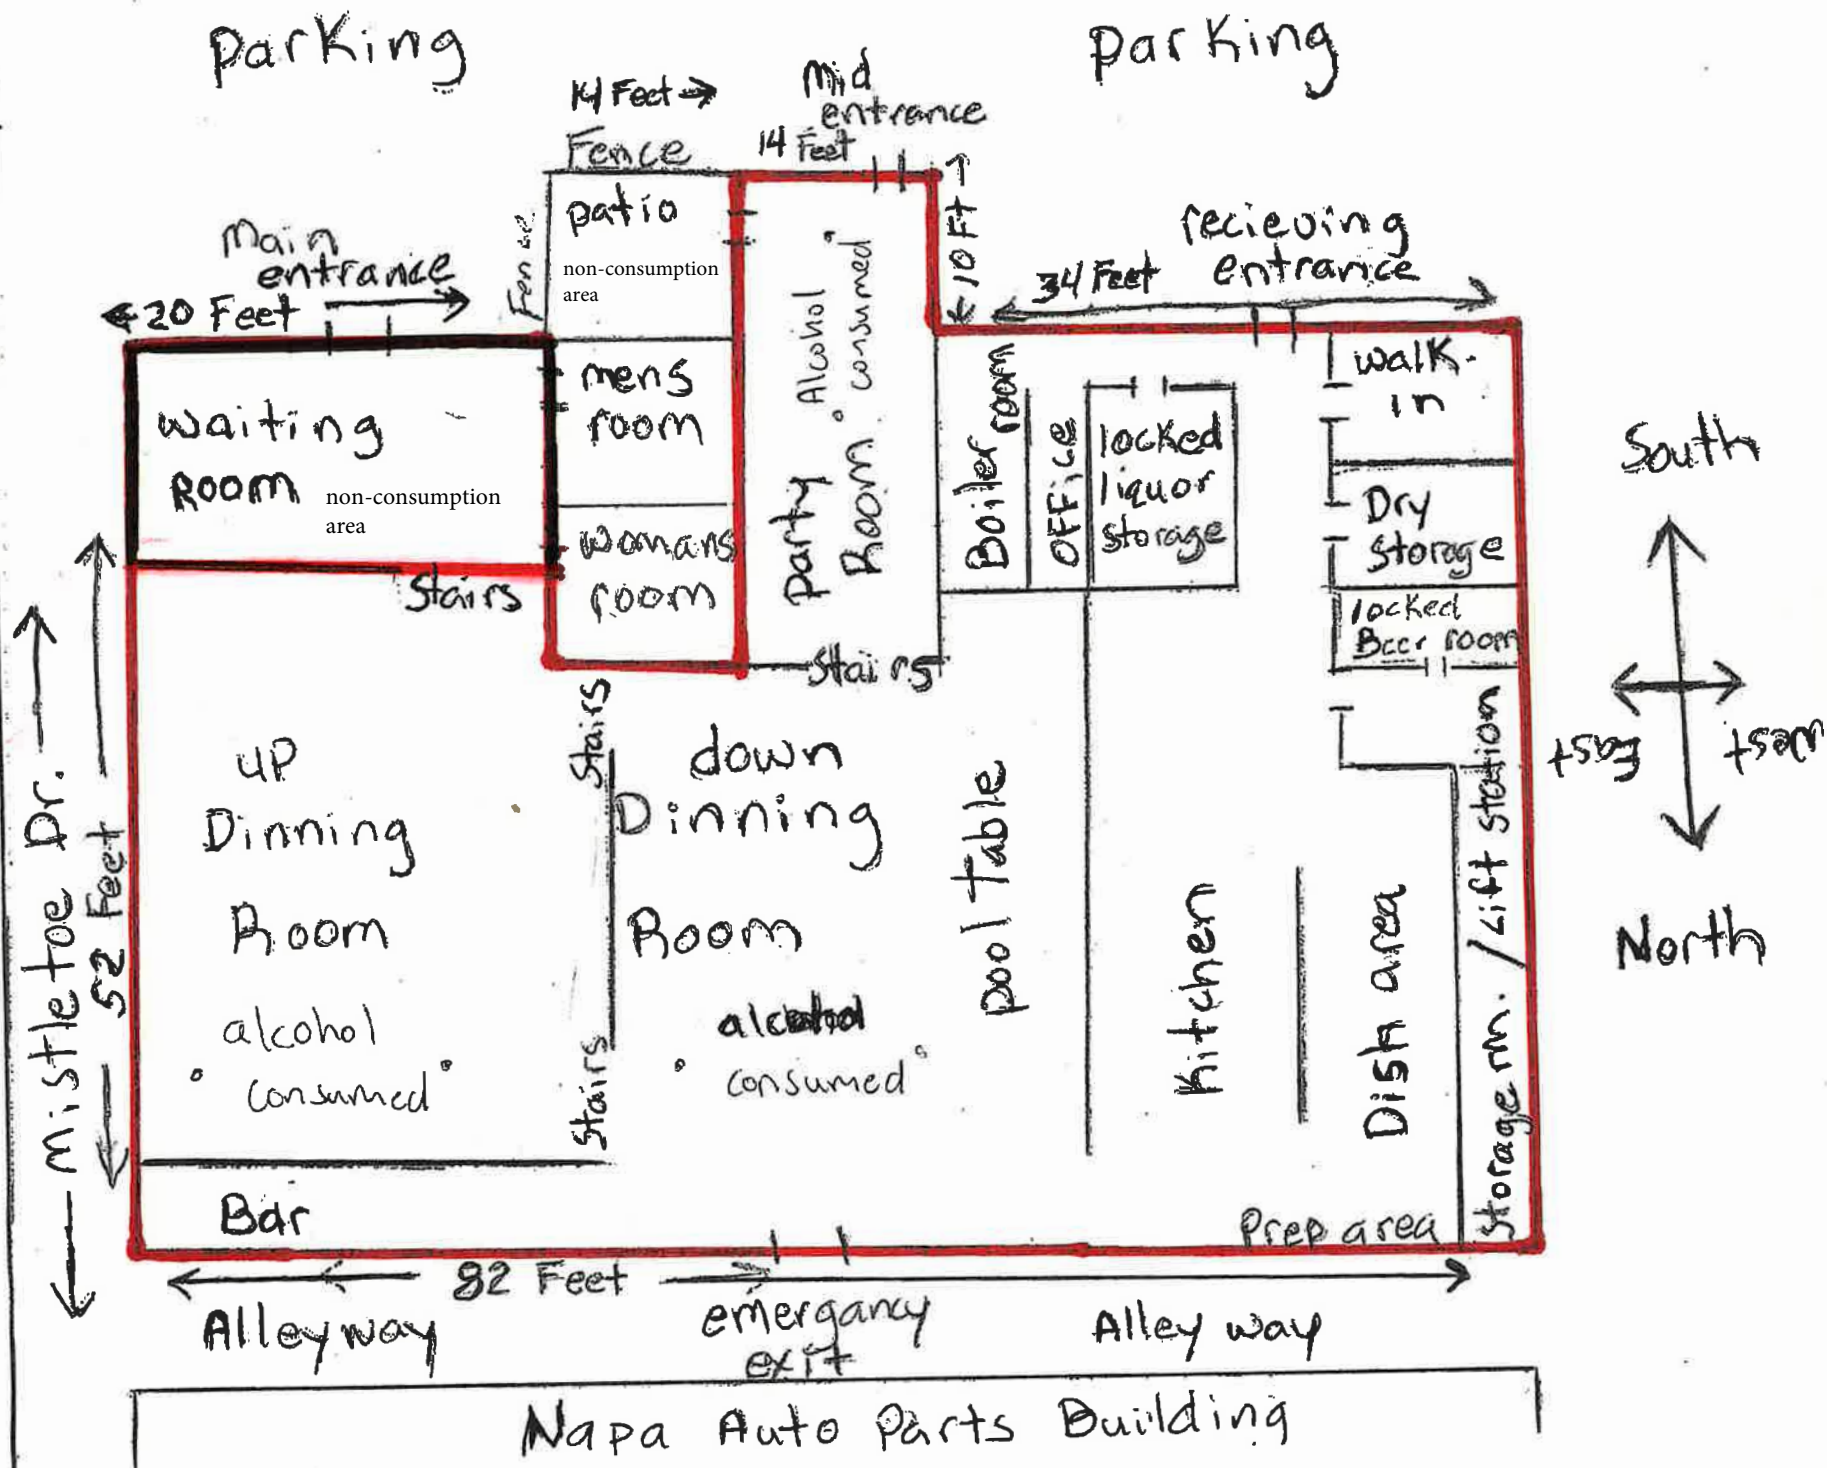 parking
parking
14 Feet
Mid
entrance
Fence
14 Feet
10 Ft
patio
Fence
non-consumption
area
Main
entrance
20 Feet
recieving
entrance
34 Feet
waiting
Room
non-consumption
area
Stairs
mens
room
womans
room
Party Room
Alcohol
consumed
Stairs
Boiler room
OFFice
locked
liquor
storage
walk-
in
Dry
storage
locked
Beer room
South
East
West
North
Mistletoe Dr.
52 Feet
UP
Dinning
Room
alcohol
consumed
Stairs
Stairs
down
Dinning
Room
alcohol
consumed
pool Table
Kitchen
Dish area
Storage rm. / Lift Station
Bar
Prep area
82 Feet
Alleyway
emergancy
exit
Alley way
Napa Auto Parts Building